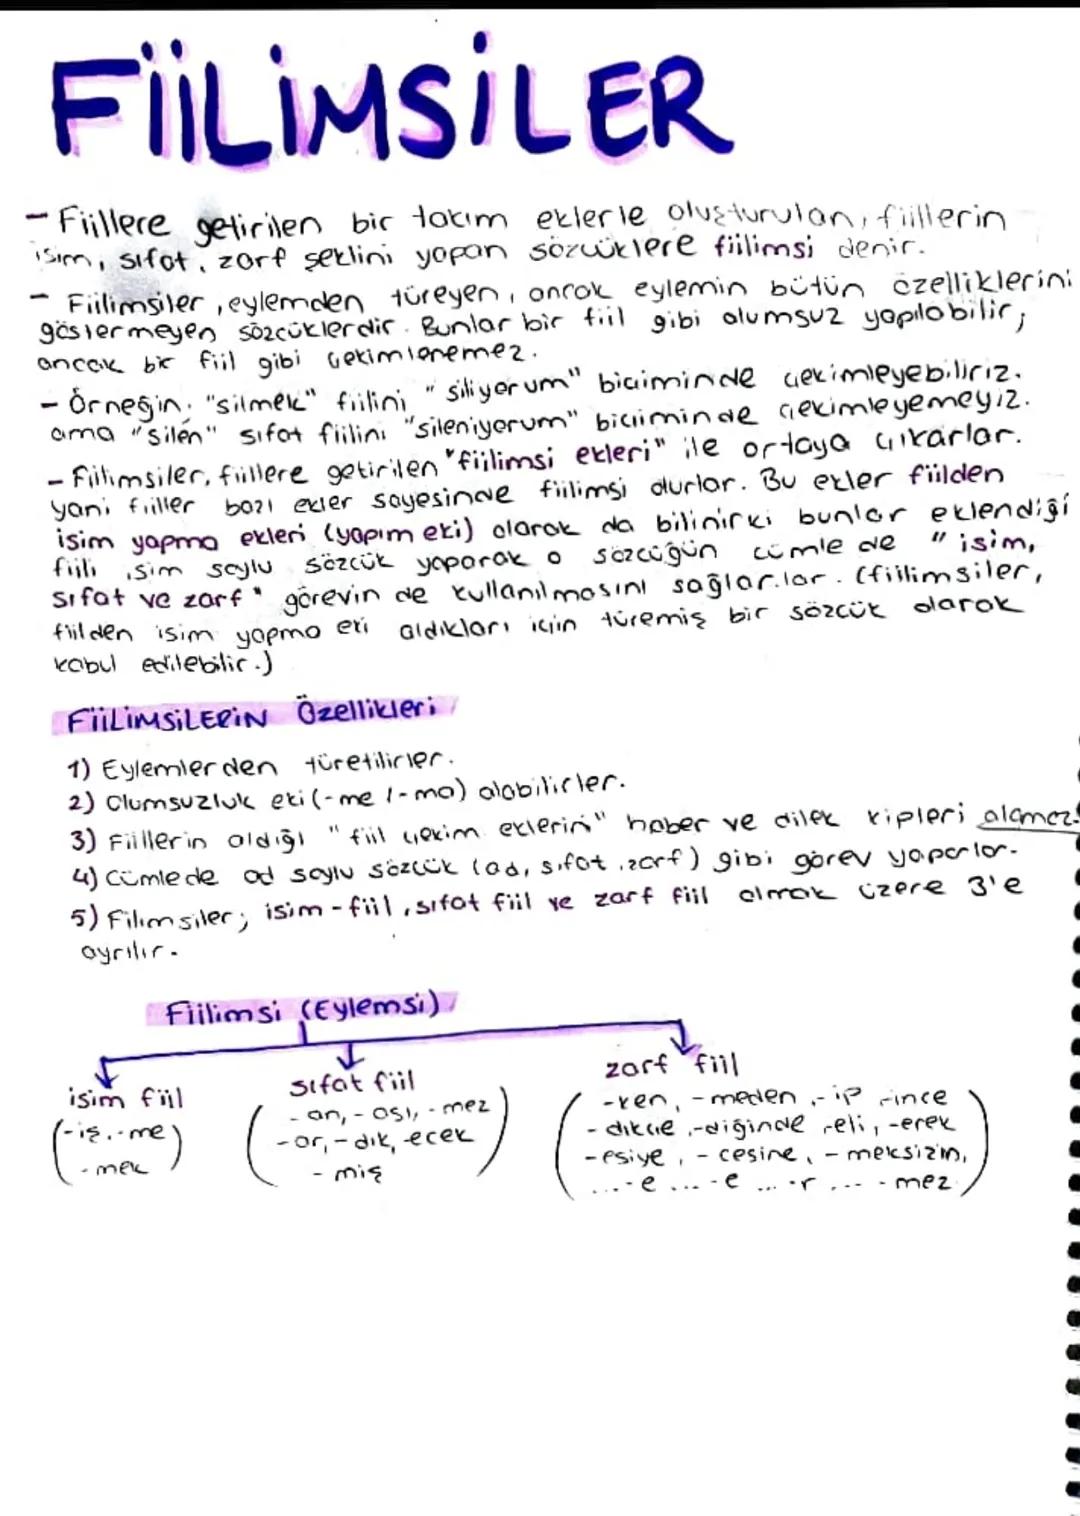 FİİLİMSİLER
- Fiillere getirilen bir takım eklerle oluşturulan, fiillerin
isim, sıfat, zarf şeklini yapan sözcüklere fiilimsi denir.
- Fiilimsiler, eylemden türeyen, ancak eylemin bütün özelliklerini
göstermeyen sözcüklerdir. Bunlar bir fiil gibi olumsuz yapılabilir;
ancak bir fiil gibi çekimlenemez.
- Örneğin; "silmek" fiilini "siliyorum" biçiminde çekimleyebiliriz.
ama "silen" sıfat fiilini "sileniyorum" biçiminde çekimleyemeyiz.
- Fiilimsiler, fiillere getirilen "fiilimsi ekleri" ile ortaya çıkarlar.
yani fiiller bazı ekler sayesinde fiilimsi olurlar. Bu ekler fiilden
isim yapma ekleri (yapım eki) olarak da bilinirki bunlar eklendiği
fiili isim soylu sözcük yaparak o sözcüğün cümle de "isim,
sıfat ve zarf" görevin de kullanılmasını sağlar.lar. (fiilimsiler,
fiilden isim yapma eki aldıkları için türemiş bir sözcük olarak
kabul edilebilir.)
FİİLİMSİLERİN Özellikleri
1) Eylemlerden türetilirler.
2) Olumsuzluk eki (-me / -ma) alabilirler.
3) Fiillerin aldığı "fiil çekim eklerini" haber ve dilek kipleri alamaz.
4) Cümlede ad soylu sözcük (ad, sıfat, zarf) gibi görev yaparlar.
5) Filimsiler; isim-fiil, sıfat fiil ve zarf fiil olmak üzere 3'e
ayrılır.
Fiilimsi (Eylemsi)
isim fiil
(-iş, -me)
-mek
sıfat fiil
(-an, -ası, -mez
-ar, -dık, -ecek
-miş)
zarf fiil
(-ken, -meden, -ip, -ince
-dikçe, -diğinde, -eli, -erek
-esiye, -cesine, -meksizin,
...-e ...-e ...-r ...-mez)